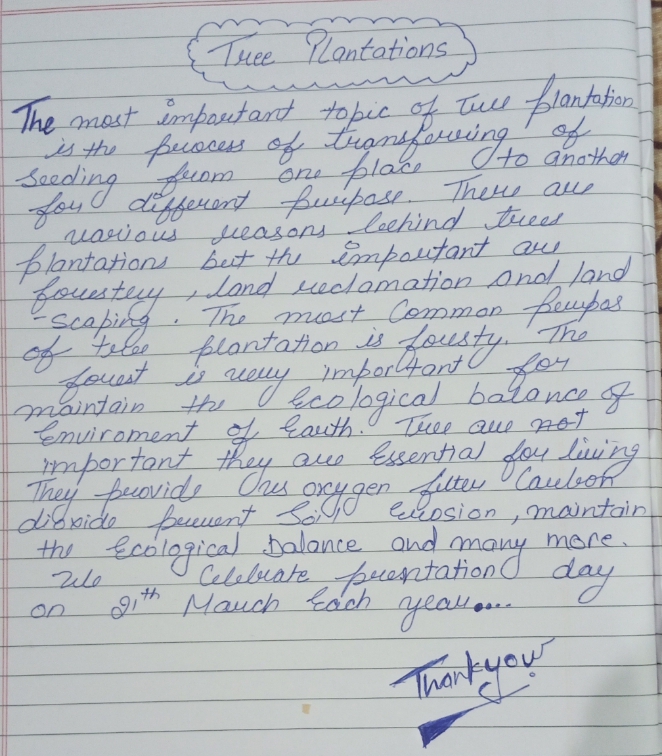 Tree Plantations
The most important topic of Tree plantation
is the process of transferring of
Seeding from one place to another
for different purpose. There are
various reasons behind trees
plantations but the important are
forestery, land reclamation and land
-scaping. The most Common purpos
of tree plantation is foresty. The
forest is very important for
maintain the Ecological balance of
Enviroment of Earth. Tree are not
important they are Essential for living
They provide Us oxygen filter Carbon
dioxide prevent Soil erosion, maintain
the Ecological Balance and many more.
We Celebrate presntation day
on 21th March Each year....
Thankyou